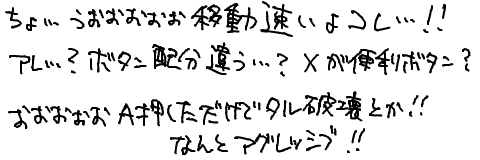 ちょ… うおおおおお 移動速いよコレ…!!
アレ…? ボタン配分違う…? Xが便利ボタン?
おおおおお A押しただけでタル破壊とか!!
なんとアグレッシブ!!